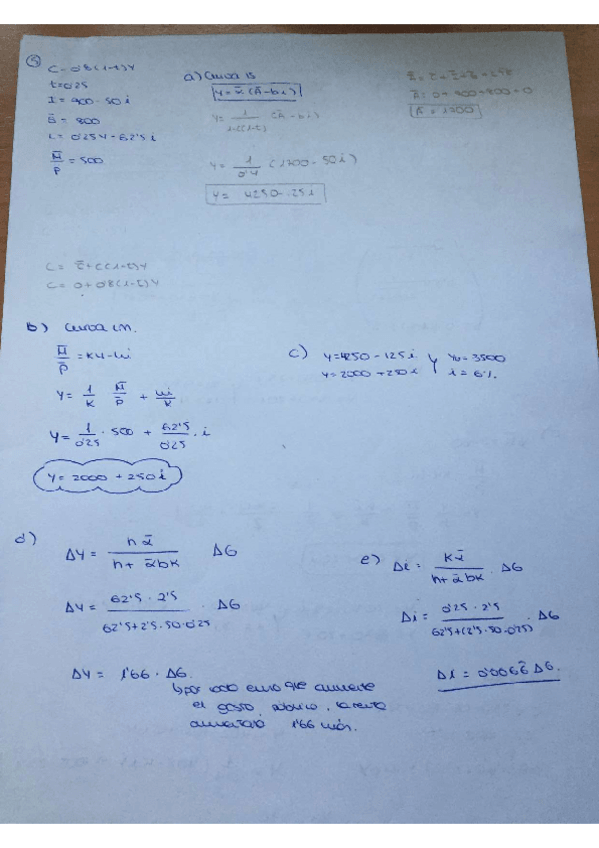 5
C = 0'8(1-t)Y
t = 0'25
I = 900 - 50i
G̅ = 800
L = 0'25Y - 62'5i
M̅/P̅ = 500
C = C̅ + c(1-t)Y
C = 0 + 0'8(1-t)Y
a) Curva IS
Y = α̅(A̅ - bi)
Y = 1/(1-c(1-t)) (A̅ - bi)
Y = 1/0'4 (1700 - 50i)
Y = 4250 - 125i
A̅ = 0 + 900 + 800 + 0
A̅ = 1700
b) Curva LM.
M̅/P̅ = KY - hi
Y = 1/K M̅/P̅ + hi/K
Y = 1/0'25 · 500 + 62'5/0'25 · i
Y = 2000 + 250i
c) Y = 4250 - 125i } Y0 = 3500
Y = 2000 + 250i } i = 6%.
d) ΔY = hα̅/(h + α̅bK) ΔG
ΔY = 62'5 · 2'5/(62'5 + 2'5 · 50 · 0'25) · ΔG
ΔY = 1'66 · ΔG.
↳ por cada euro que aumente
el gasto público, la renta
aumentará 1'66 más.
e) Δi = Kα̅/(h + α̅bK) · ΔG
Δi = 0'25 · 2'5/(62'5 + (2'5 · 50 · 0'25)) · ΔG
Δi = 0'0066 ΔG.